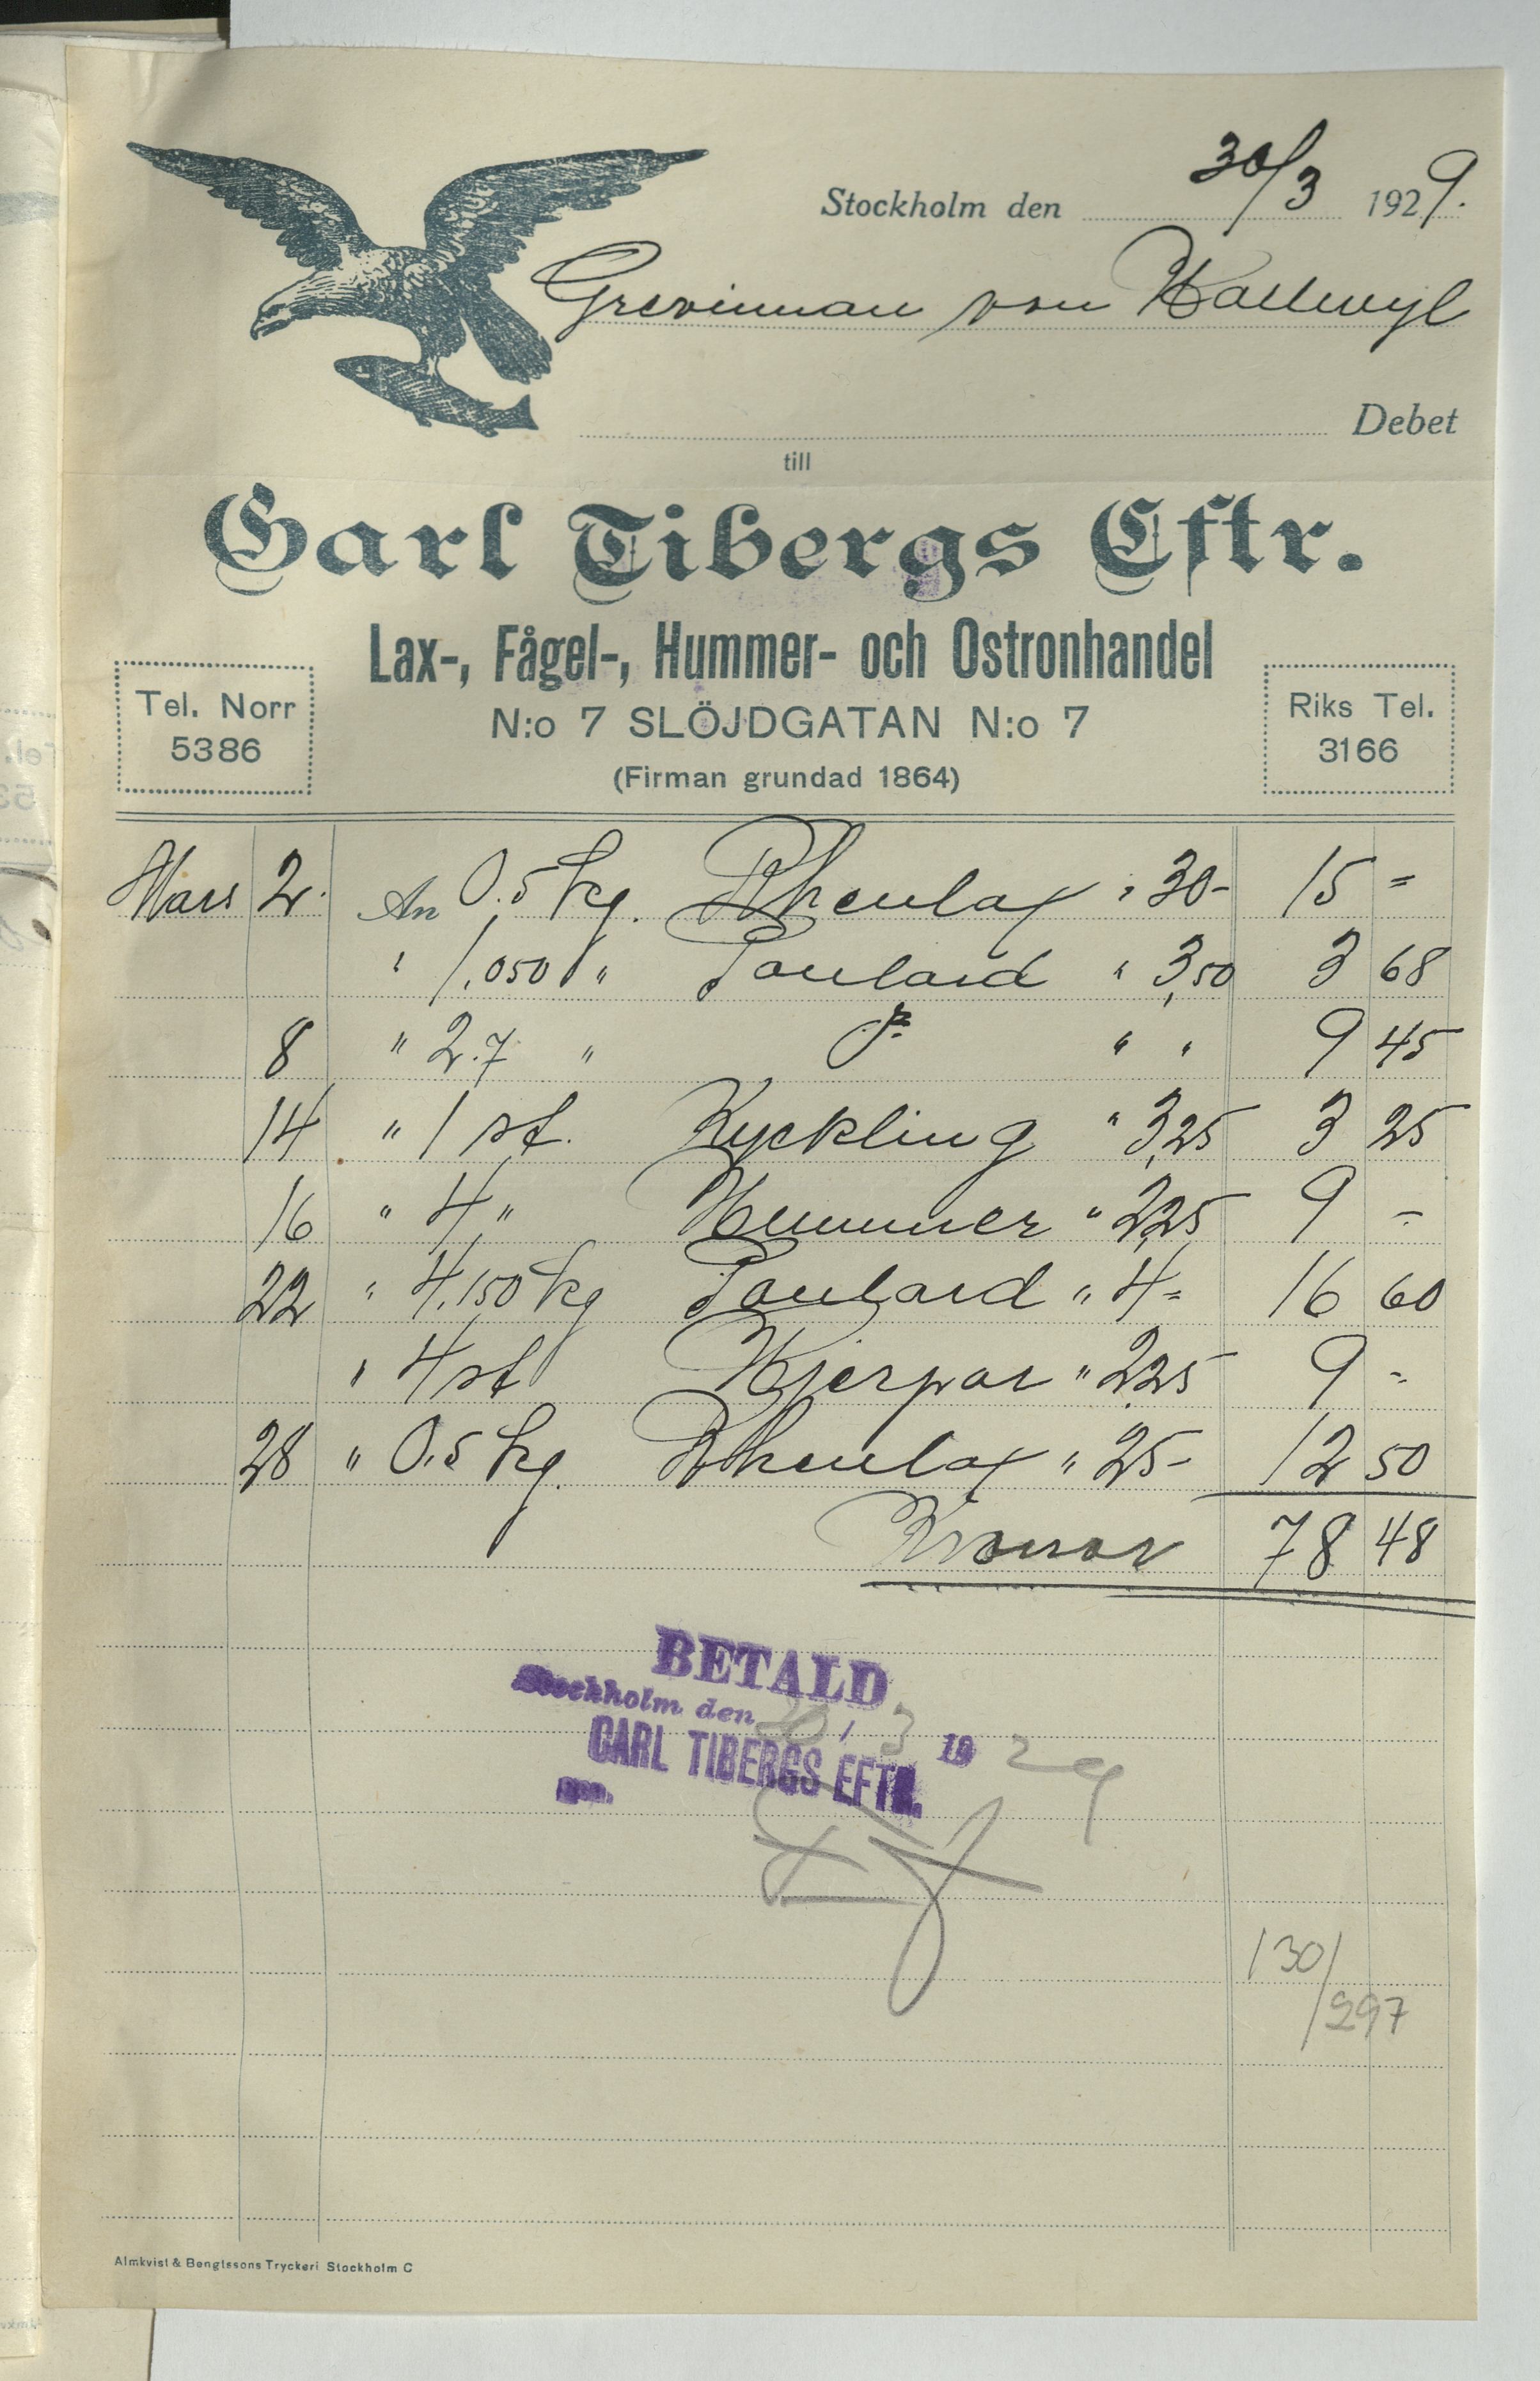 Stockholm den 30/3 1929.
Grevinnan von Hallwyl
Debet
till
Carl Tibergs Eftr.
Lax-, Fågel-, Hummer- och Ostronhandel
Tel. Norr
5386
N:o 7 SLÖJDGATAN N:o 7
Riks Tel.
3166
(Firman grundad 1864)
Mars 2. An 0.5 kg. Rhenlax " 30- 15 =
" 1,050 " Poulard " 3,50 3 68
8 " 2.7 " " " 9 45
14 " 1 st. Kyckling " 3,25 3 25
16 " 4 " Hummer " 2,25 9 -
22 " 4,150 kg Poulard " 4= 16 60
" 4 st Hjerpar " 2,25 9 -
28 " 0.5 kg. Rhenlax " 25- 12 50
Kronor 78 48
BETALD
Stockholm den 30/3 1929
CARL TIBERGS EFTR.
130/
297
Almkvist & Bengtssons Tryckeri Stockholm C